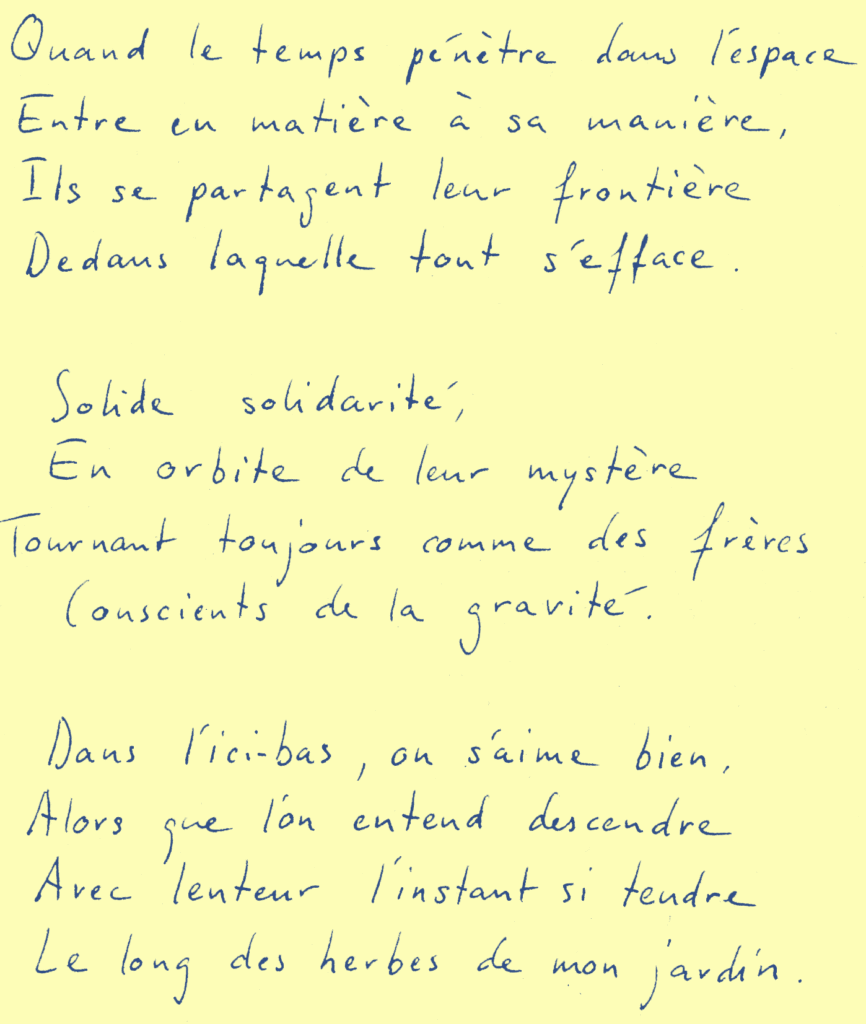 Quand le temps pénètre dans l'espace
Entre en matière à sa manière,
Ils se partagent leur frontière
Dedans laquelle tout s'efface.
Solide solidarité,
En orbite de leur mystère
Tournant toujours comme des frères
Conscients de la gravité.
Dans l'ici-bas, on s'aime bien,
Alors que l'on entend descendre
Avec lenteur l'instant si tendre
Le long des herbes de mon jardin.